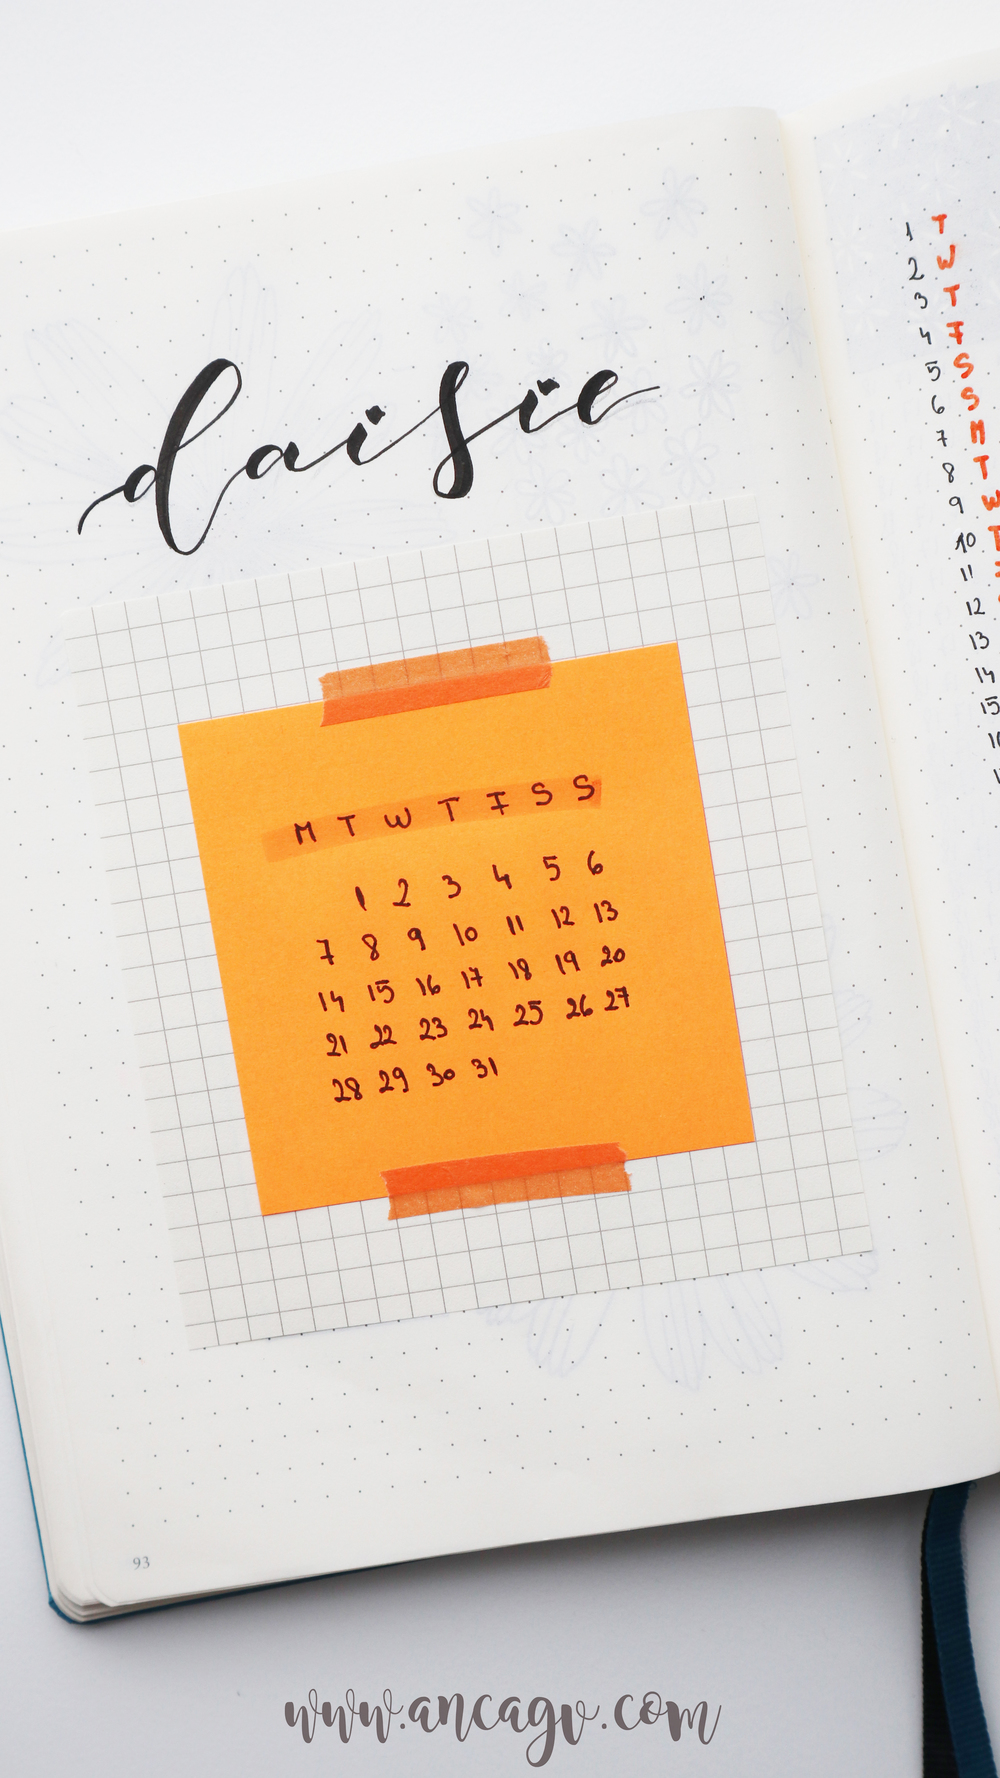 daisie
M T W T F S S
1 2 3 4 5 6
7 8 9 10 11 12 13
14 15 16 17 18 19 20
21 22 23 24 25 26 27
28 29 30 31
93
1 T
2 W
3 T
4 F
5 S
6 S
7 M
8 T
9 W
10 T
11
12
13
14
15
www.ancagv.com